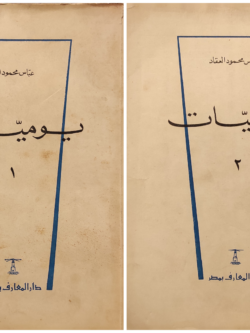 عبّاس محمود ا
يوميّـ
١
دار المعارف بـ
س محمود العقاد
ـيّات
٢
المعارف بمصر